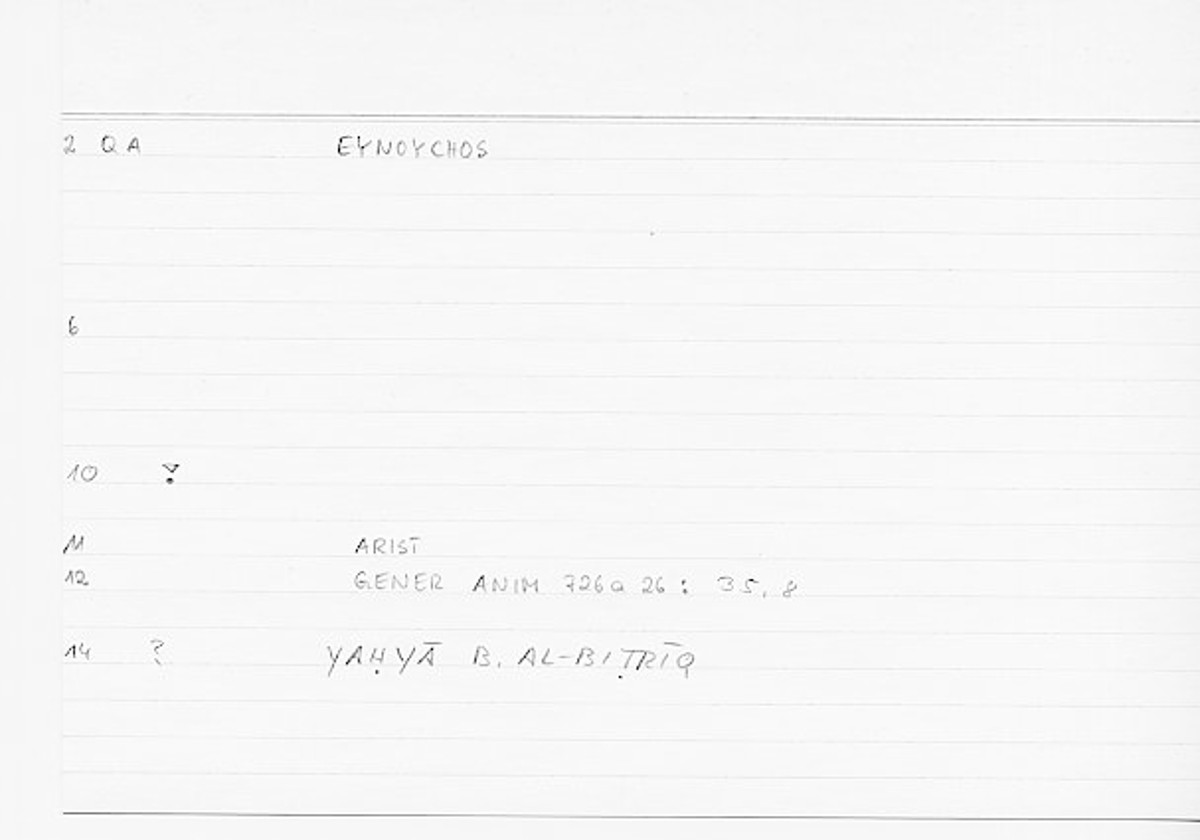 2 QA EYNOYCHOS
6
10
11 ARIST
12 GENER ANIM 726a 26 : 35, 8
14 ? YAḤYĀ B. AL-BIṬRĪQ